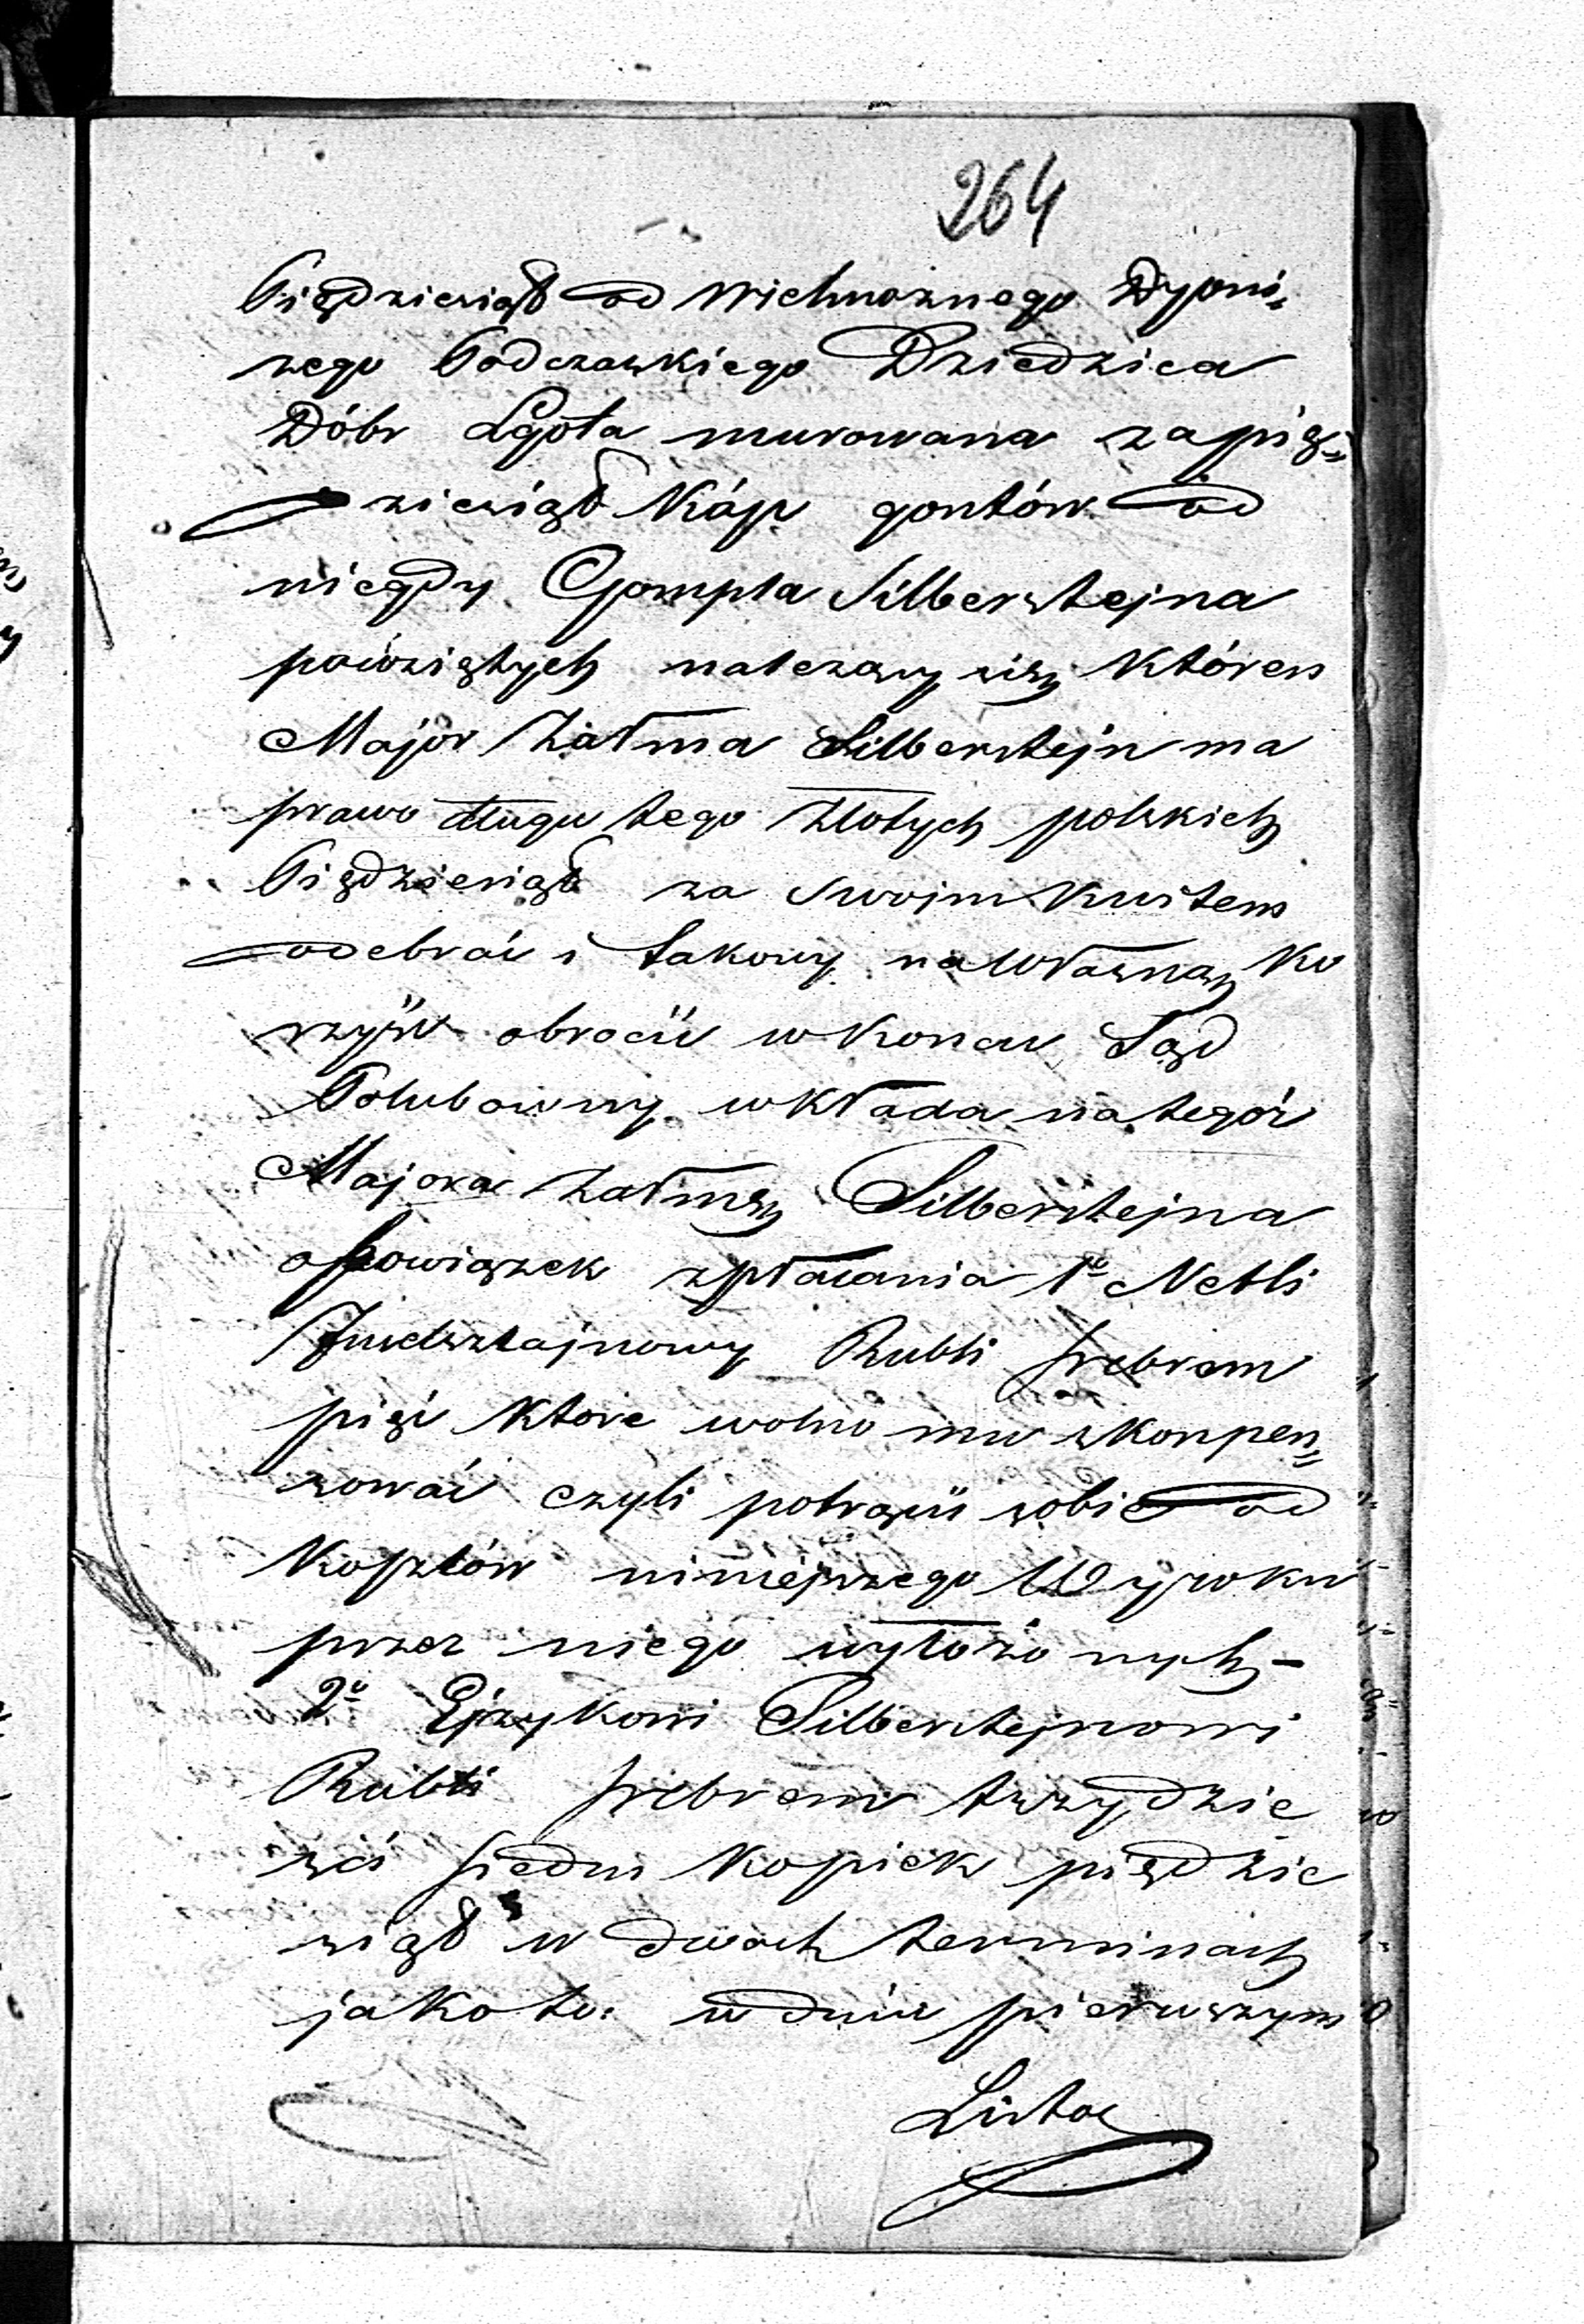 264
Pięędziesiąt od Wielmożnego Dyoni=
zego Podczaskiego Dziedzica
Dóbr Lgota murowana za pięć=
dziesiąt kóp gontów od
niegdy Gompla Silbersztejna
powziętych należący się, któren
Major Załma Silbersztejn ma
prawo długu tego Złotych polskich
Pięędziesiąt za swoim kwitem
odebrać i takowy na własną ko
rzyść obrócić w końcu Sąd
Polubowny wkłada na tegóż
Majora Załmę Silbersztejna
obowiązek zpłacenia 1o Netli
Rubli srebrem
pięć które wolno mu skonpen=
sować czyli potrącić sobie od
kosztów niniejszego Wyroku
przez niego wyłożonych –
2o Ejzykowi Silbersztejnowi
Rubli srebrem trzydzie
ści siedm kopiek pięędzie
siąt w dwóch terminach
jako to: w dniu pierwszym
Listo